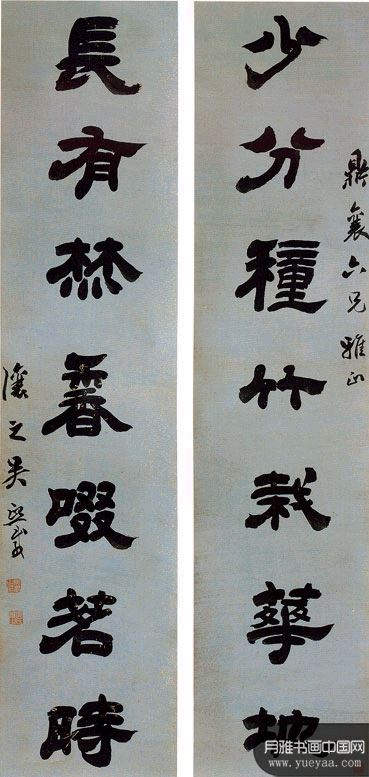 鼎襄六兄雅正
少分種竹栽華地
長有焚香啜茗時
讓之吳熙載
月雅书画中国网
www.yueyaa.com